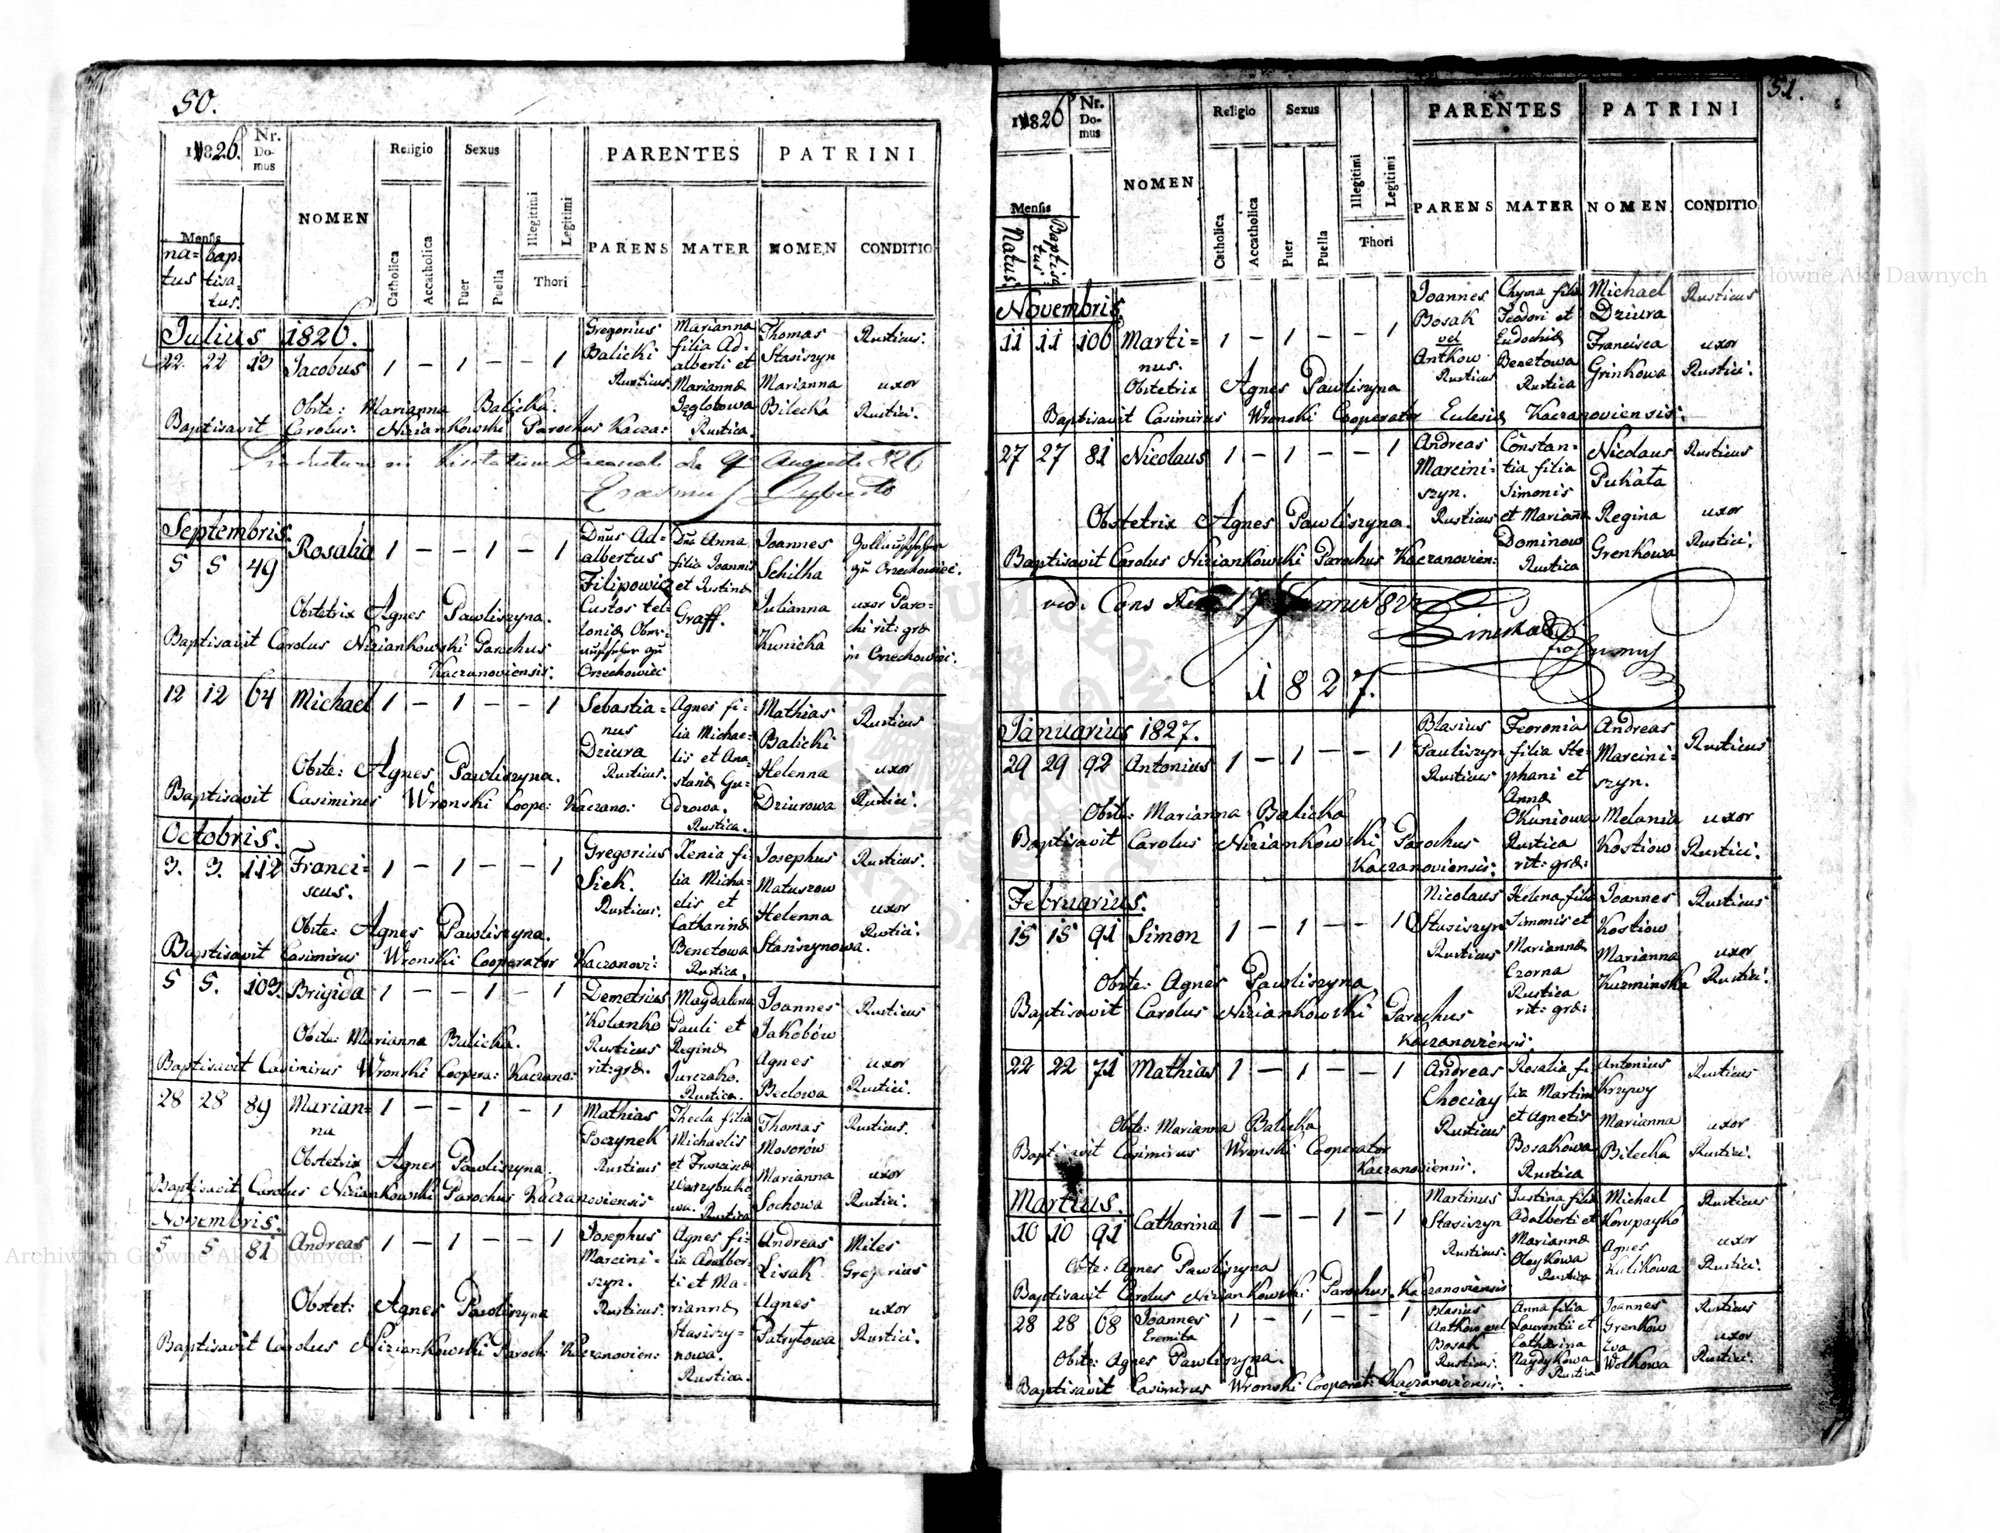 50.
1826. Nr. Domus NOMEN Religio Sexus PARENTES PATRINI
Mensis Catholica Accatholica Puer Puella Illegitimi Legitimi Thori PARENS MATER NOMEN CONDITIO
natus baptisatus.
Julius 1826.
22. 22 13 Jacobus 1 – 1 – – 1
Gregorius Balicki Rusticus
Marianna filia Adalberti et Mariannæ Rustica.
Thomas Stasiszyn Rusticus.
Marianna Bilecka uxor Rustici.
Obste: Marianna Balicka.
Baptisavit Carolus Niziankowski Parochus Kacza:
Septembris.
5 5 49 Rosalia 1 – – 1 – 1
Dnus Adalbertus Filipowicz Custos telloniæ
Orzechowiec
Dna Anna filia Joannis et Justinæ Graff.
Joannes Schilha
zu Orzechowiec.
Julianna Kunicka uxor Parochi rit: græ in Orzechowiec.
Obstetrix Agnes Pawliszyna.
Baptisavit Carolus Niziankowski Parochus
Kaczanoviensis.
12 12 64 Michael 1 – 1 – – 1
Sebastianus Dziura Rusticus.
Agnes filia Michaelis et Rustica.
Mathias Balicki Rusticus
Helenna Dziurowa uxor Rustici.
Obste: Agnes Pawliszyna.
Baptisavit Casimirus Wronski Coope: Kaczano:
Octobris.
3. 3. 112 Franciscus. 1 – 1 – – 1
Gregorius Siek. Rusticus.
Xenia filia Michaelis et Catharinæ Benetowa Rustica.
Josephus Matuszow Rusticus.
Helenna Stasiszynowa. uxor Rustici.
Obste: Agnes Pawliszyna.
Baptisavit Casimirus Wronski Cooperator Kaczanovi:
5 5. 103. Brigida 1 – – 1 – 1
Demetrius Kolanko Rusticus rit: græ.
Magdalena Pauli et Reginæ Jurczako. Rustica.
Joannes Jakobów Rusticus
Agnes Beclowa uxor Rustici.
Obste: Marianna Balicka.
Baptisavit Casimirus Wronski Coopera: Kaczano:
28 28 89 Marianna 1 – – 1 – 1
Mathias Poczynek Rusticus
Thecla filia Michaelis et Rustica
Thomas Mosorów Rusticus.
Marianna Sochowa uxor Rustici.
Obstetrix Agnes Pawliszyna.
Baptisavit Carolus Niziankowski Parochus Kaczanoviensis
Novembris.
5 5 81 Andreas 1 – 1 – – 1
Josephus Marciniszyn. Rusticus.
Agnes filia Adalberti et Mariannæ Stasiszynowa. Rustica.
Andreas Lisak Miles Gregarius
Agnes Patrytowa uxor Rustici.
Obstet: Agnes Pawliszyna
Baptisavit Carolus Niziankowski Paroch: Kaczanovien:
51.
1826 Nr. Domus NOMEN Religio Sexus PARENTES PATRINI
Mensis Catholica Accatholica Puer Puella Illegitimi Legitimi Thori PARENS MATER NOMEN CONDITIO
Natus. Baptisatus.
Novembris.
11 11 106 Martinus. 1 – 1 – – 1
Joannes Bosak vel Antkow Rusticus
filia Teodori et Eudochiæ Benetowa Rustica
Michael Dziura Rusticus
Francisca Grinkowa uxor Rustici.
Obstetrix Agnes Pawliszyna
Baptisavit Casimirus Wronski Cooperator Eclesiæ Kaczanoviensis.
27 27 81 Nicolaus 1 – 1 – – 1
Andreas Marciniszyn. Rusticus
Constantia filia Simonis et Marianna Dominow Rustica
Nicolaus Puhata Rusticus
Regina Grenkowa uxor Rustici.
Obstetrix Agnes Pawliszyna.
Baptisavit Carolus Niziankowski Parochus Kaczanovien:
1827.
Januarius 1827.
29 29 92 Antonius 1 – 1 – – 1
Blasius Pauliszyn Rusticus
Feoronia filia Stephani et Annæ Okuniowa Rustica rit: græ:
Andreas Marciniszyn. Rusticus
Melania Kostiow uxor Rustici.
Obste: Marianna Balicka
Baptisavit Carolus Niziankowski Parochus
Kaczanoviensis.
Februarius.
15 15 91 Simon 1 – 1 – – 1
Nicolaus Stasiszyn Rusticus
Helena filia Simonis et Mariannæ Czorna Rustica rit: græ:
Joannes Kostiow Rusticus
Marianna Kuzminska uxor Rustici.
Obste: Agnes Pawliszyna
Baptisavit Carolus Niziankowski Parochus
Kaczanoviensis.
22 22 71 Mathias 1 – 1 – – 1
Andreas Chociay Rusticus
Rosalia filia Martini et Agnetis Bosakowa Rustica
Antonius Krzywy Rusticus
Marianna Bilecka uxor Rustici.
Obste: Marianna Balicka
Baptisavit Casimirus Wronski Cooperator
Kaczanoviensis.
Martius.
10 10 91 Catharina 1 – – 1 – 1
Martinus Stasiszyn Rusticus.
Justina filia Adalberti et Mariannæ Oleykowa Rustica
Michael Korupayko Rusticus
Agnes Kulikowa uxor Rustici.
Obste: Agnes Pawliszyna
Baptisavit Carolus Niziankowski Parochus Kaczanoviensis
28 28 68 Joannes Eremita 1 – 1 – – 1
Blasius Antkow vel Bosak Rusticus.
Anna filia Laurentii et Catharina Naydykowa Rustica
Joannes Grenkow Rusticus
Eva Wolkowa uxor Rustici.
Obste: Agnes Pawliszyna.
Baptisavit Casimirus Wronski Cooperat: Kaczanoviensis.
Archiwum Główne Akt Dawnych
Archiwum Główne Akt Dawnych